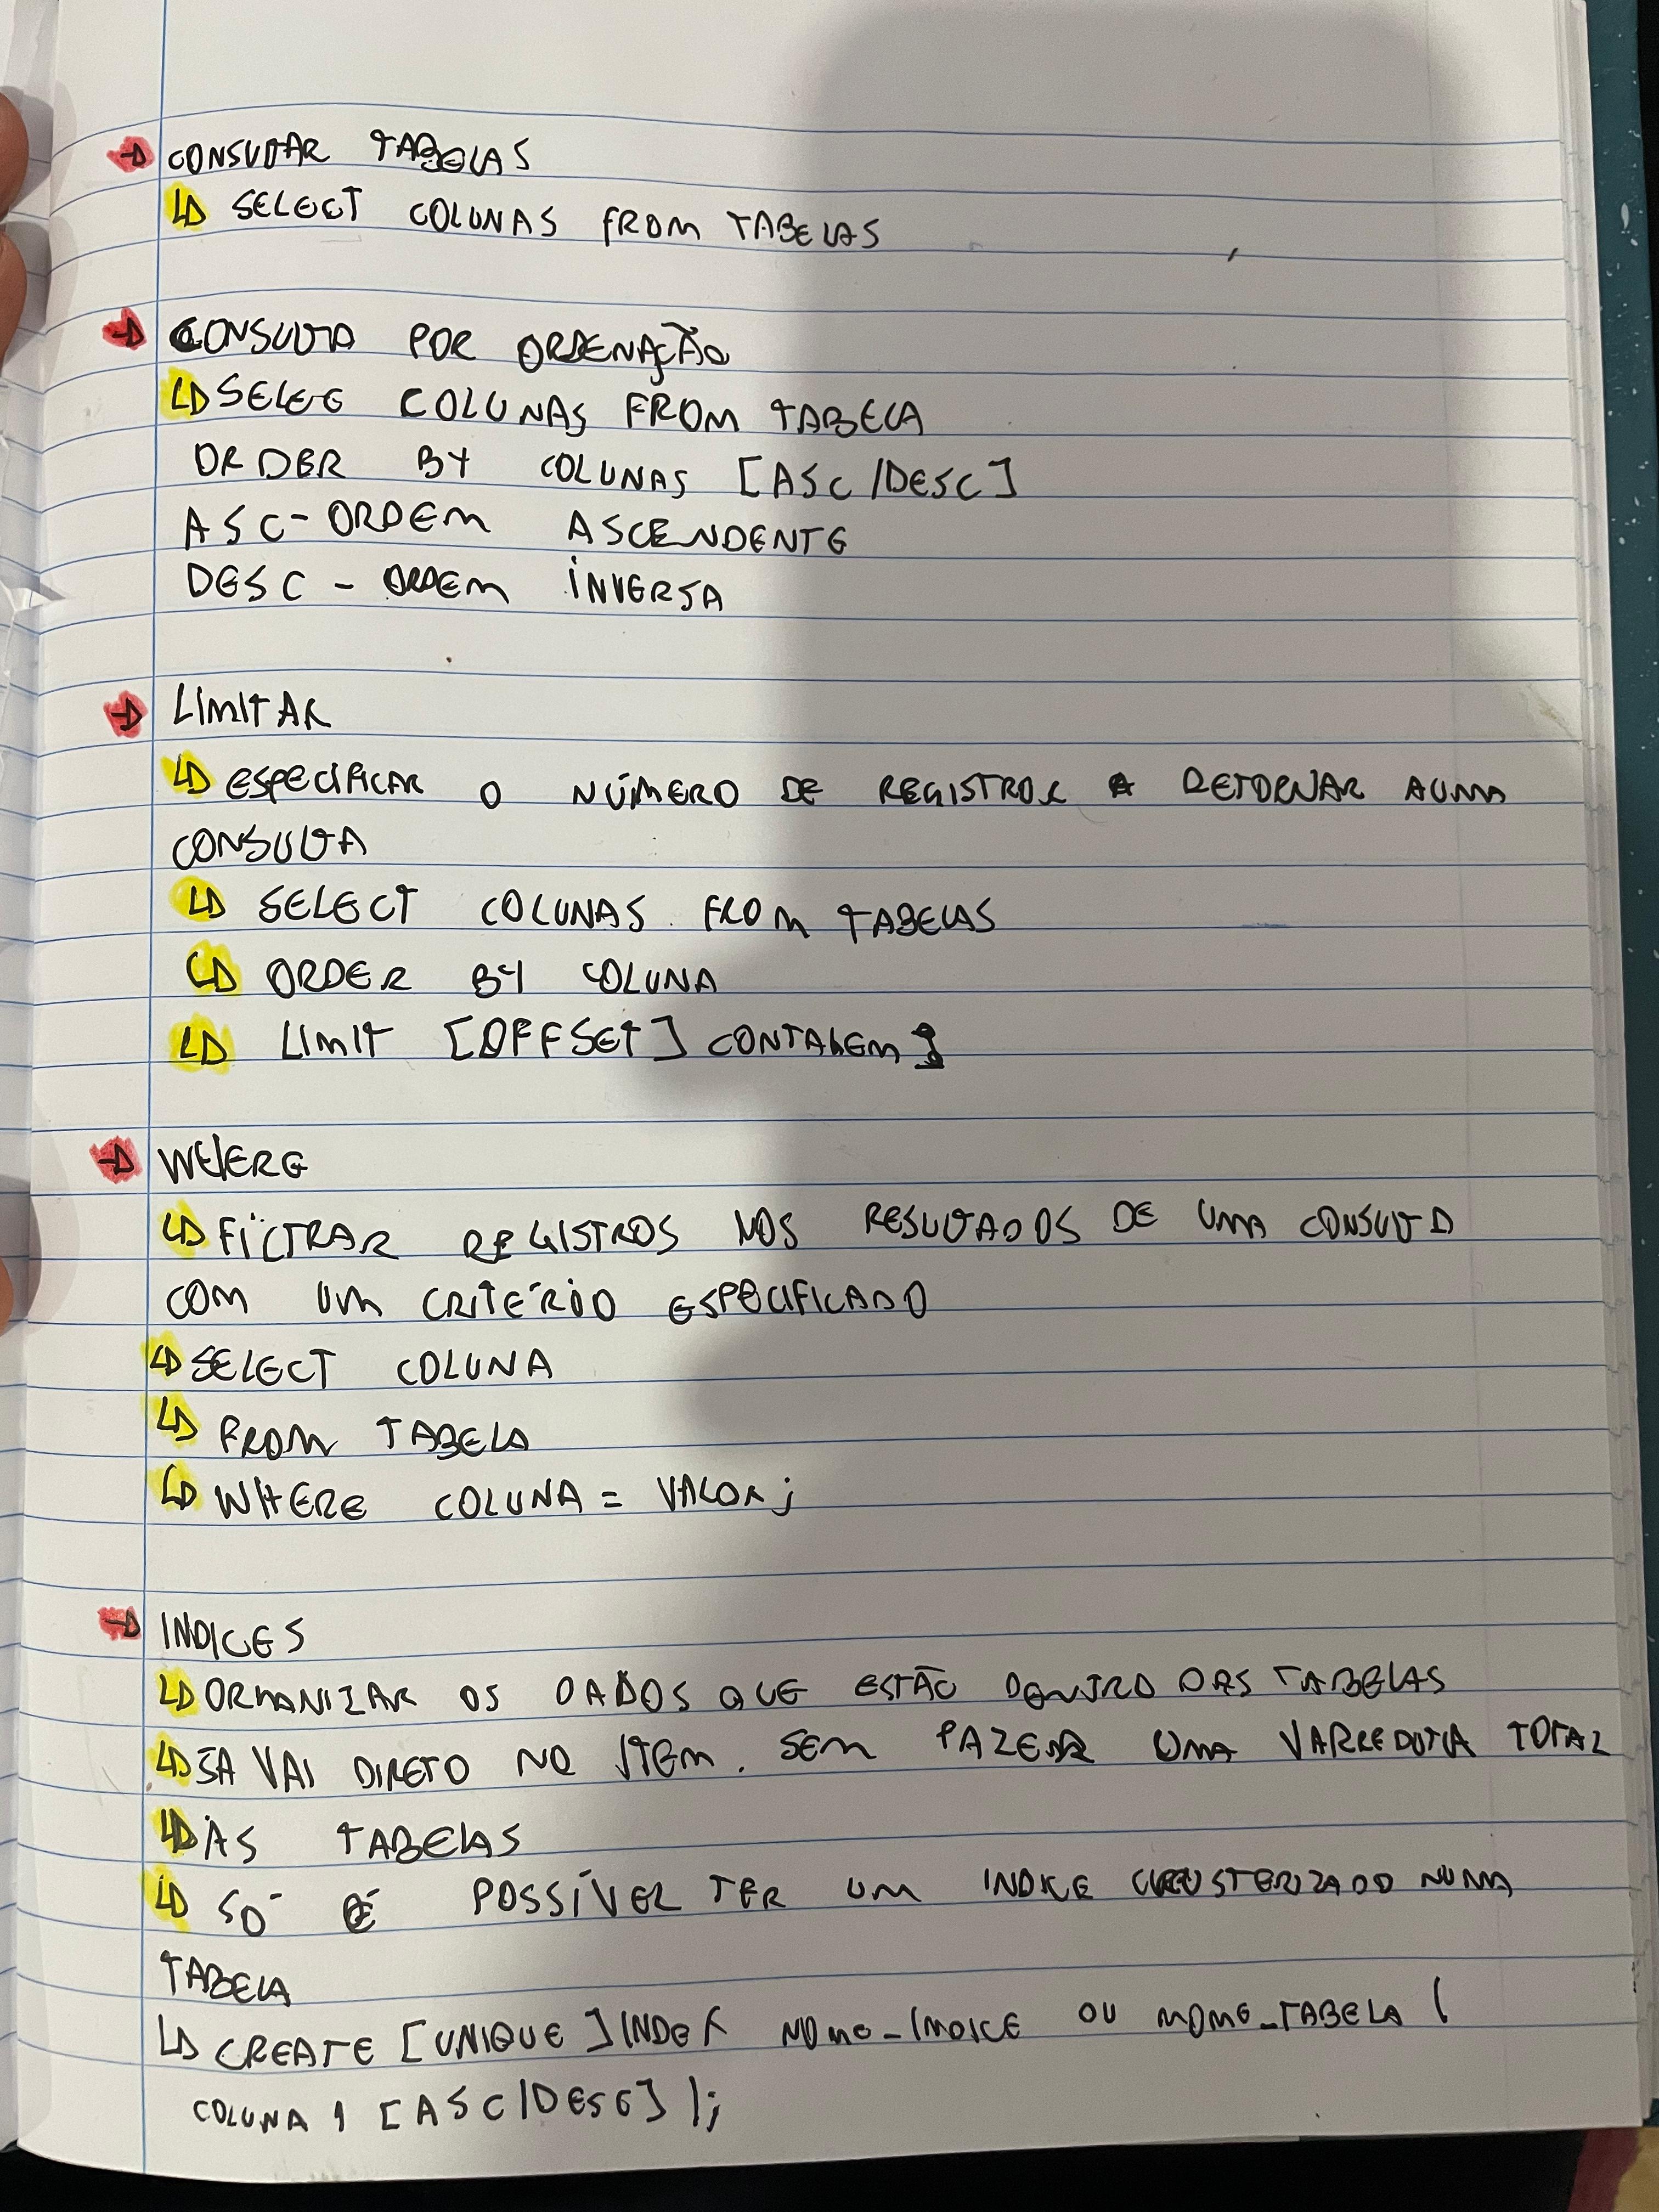 → CONSULTAR TABELAS
↳ SELECT COLUNAS FROM TABELAS
→ CONSULTA POR ORDENAÇÃO
↳ SELEC COLUNAS FROM TABELA
ORDER BY COLUNAS [ASC/DESC]
ASC - ORDEM ASCENDENTE
DESC - ORDEM INVERSA
→ LIMITAR
↳ ESPECIFICAR O NÚMERO DE REGISTROS A RETORNAR A UMA
CONSULTA
↳ SELECT COLUNAS FROM TABELAS
↳ ORDER BY COLUNA
↳ LIMIT [OFFSET] CONTAGEM;
→ WHERE
↳ FILTRAR REGISTROS NOS RESULTADOS DE UMA CONSULTA
COM UM CRITÉRIO ESPECIFICADO
↳ SELECT COLUNA
↳ FROM TABELA
↳ WHERE COLUNA = VALOR;
→ INDICES
↳ ORGANIZAR OS DADOS QUE ESTÃO DENTRO DAS TABELAS
↳ JA VAI DIRETO NO ITEM. SEM FAZER UMA VARREDURA TOTAL
↳ ÀS TABELAS
↳ SÓ É POSSÍVEL TER UM INDICE CLUSTERIZADO NUMA
TABELA
↳ CREATE [UNIQUE] INDEX NOME_INDICE OU NOME_TABELA (
COLUNA 1 [ASC|DESC] );